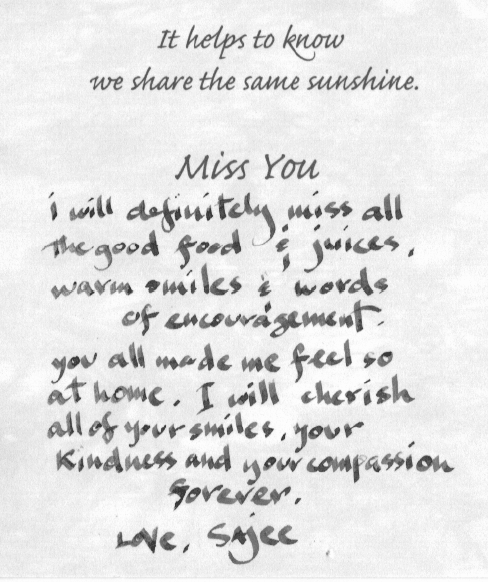 It helps to know
we share the same sunshine.
Miss You
i will definitely miss all
the good food & juices,
warm smiles & words
of encouragement.
you all made me feel so
at home. I will cherish
all of your smiles, your
Kindness and your compassion
forever.
Love, Sajee